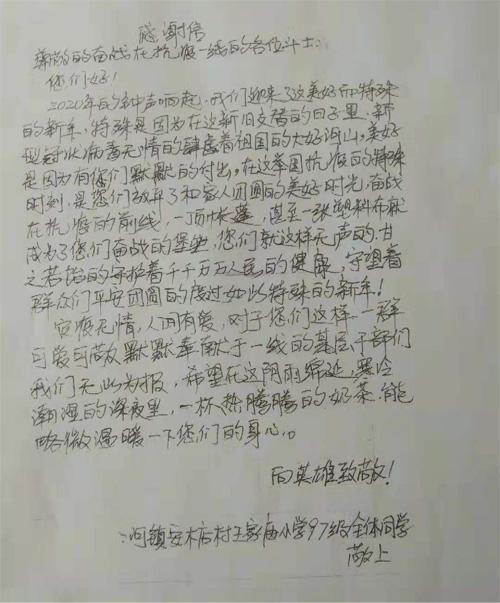 感谢信
尊敬的奋战在抗疫一线的各位斗士:
您们好!
2020年的钟声响起,我们迎来了这美好而特殊
的新年,特殊是因为在这新旧交替的日子里,新
型冠状病毒无情的肆虐着祖国的大好河山,美好
是因为有您们默默的付出。在这举国抗疫的特殊
时刻,是您们放弃了和家人团圆的美好时光,奋战
在抗疫的前线,一顶帐篷,甚至一张塑料布就
成为了您们奋战的堡垒,您们就这样无声的,甘
之若饴的守护着千千万万人民的健康,守望着
群众们平安团圆的度过如此特殊的新年!
疫痕无情,人间有爱,对于您们这样一群
可爱可敬默默奉献于一线的基层干部们
我们无以为报,希望在这阴雨绵延,寒冷
潮湿的深夜里,一杯热腾腾的奶茶,能
略微温暖一下您们的身心。
向英雄致敬!
河镇安木店村王家庙小学97级全体同学
敬上